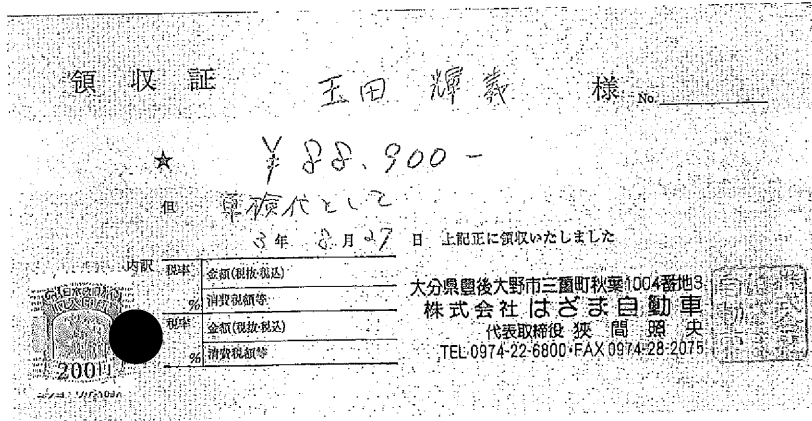 領収証 玉田 輝義 様 No.
★ ¥88,900-
但 車検代として
3年 8月27日 上記正に領収いたしました
内訳 税率 金額(税抜・税込)
% 消費税額等
税率 金額(税抜・税込)
% 消費税額等
200円
大分県豊後大野市三重町秋葉1004番地3
株式会社 はざま自動車
代表取締役 狭間照央
TEL 0974-22-6800・FAX 0974-28-2075